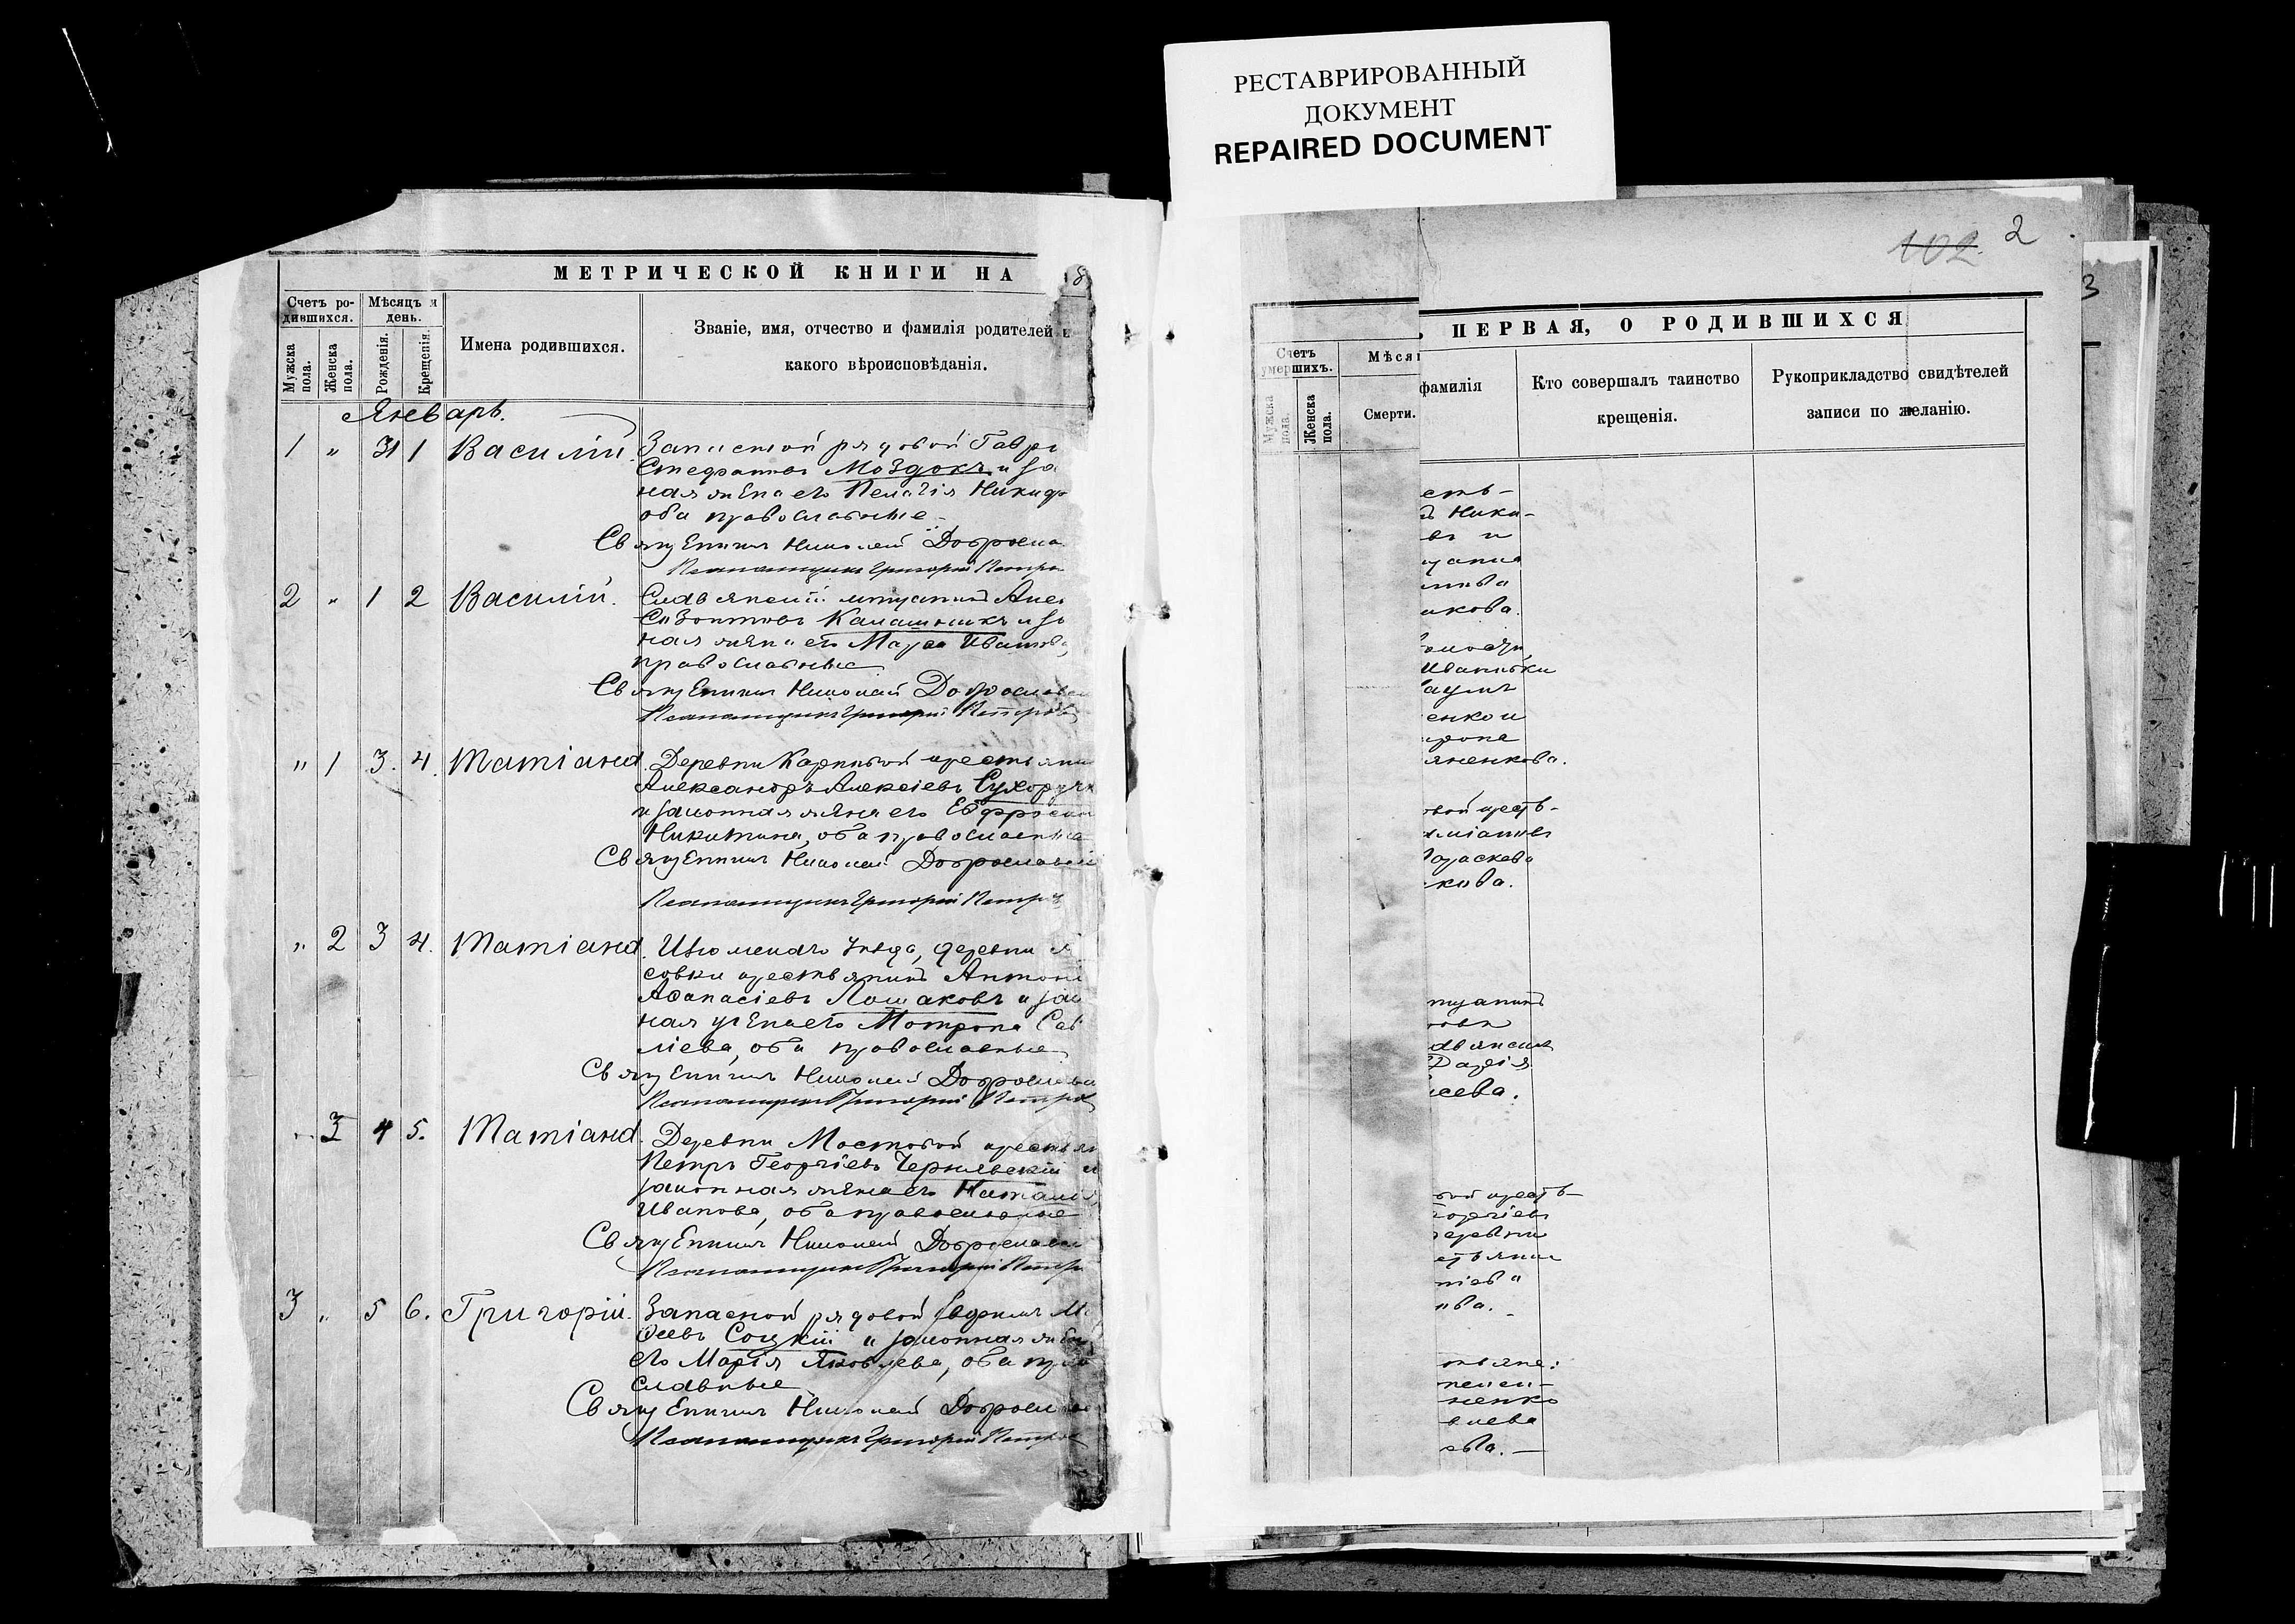 РЕСТАВРИРОВАННЫЙ
ДОКУМЕНТ
REPAIRED DOCUMENT
МЕТРИЧЕСКОЙ КНИГИ НА 18
Счетъ ро-
дившихся.
Мѣсяцъ и
день.
Мужска
пола.
Женска
пола.
Рожденія.
Крещенія.
Имена родившихся.
Званіе, имя, отчество и фамилія родителей и
какого вѣроисповѣданія.
Январь.
1 " 31 1 Василій Запасной рядовой Гаври
Стефановъ Моздокъ и за
ная жена его Пелагія Никиф
оба православные
Священникъ Николай Доброслав
Псаломщикъ Григорій Петро
2 " 1 2 Василій. Славянскій мѣщанинъ Алек
Созонтовъ Калашникъ и за
ная жена его Марѳа Иванова,
православные
Священникъ Николай Доброславск
Псаломщикъ Григорій Петров
" 1 3. 4. Татіана. Деревни Карповой крестьянин
Александръ Алексіевъ Сухоруч
и законная жена его Евфросин
Никитина, оба православные
Священникъ Николай Доброславскій
Псаломщикъ Григорій Петров
" 2 3 4. Татіана. Изюмскаго уѣзда, деревни
совки крестьянинъ Антоні
Аѳанасіевъ Лошаковъ и зак
ная жена его Мотрона Сав
ліева, оба православные
Священникъ Николай Доброславск
Псаломщикъ Григорій Петров
" 3 4 5. Татіана. Деревни Мостовой крестьян
Петръ Георгіевъ Чернявскій и
законная жена его Наталія
Иванова, оба православные
Священникъ Николай Доброславск
Псаломщикъ Григорій Петро
3 " 5 6. Григорій. Запасной рядовой Евфимъ М
сеевъ Соцкій и законная жена
его Марія Яковлева, оба пра
славные
Священникъ Николай Доброслав
Псаломщикъ Григорій Петров
102 2
3
Ь ПЕРВАЯ, О РОДИВШИХСЯ
Счетъ
умершихъ.
Мѣся
Мужска
пола.
Женска
пола.
Смерти.
фамилія
Кто совершалъ таинство
крещенія.
Рукоприкладство свидѣтелей
записи по желанію.
есть-
Ники-
въ и
щанка
кова.
Ивановки
аумъ
енко и
рона
яненкова.
вой крестъ-
міановъ
Параскева
кова.
щанинъ
овъ
авянск
Дарія
сеева.
ой крестъ-
Георгіевъ
деревни
естьянк
ова.
стьяне:
ненко
влева
ева. —